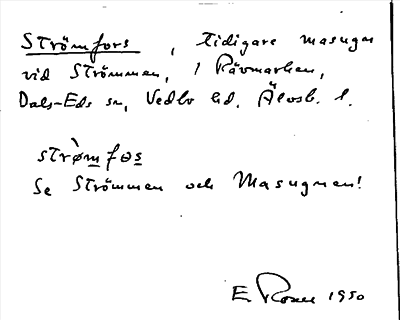 Strömfors, tidigare masugn
vid Strömmen, i Rävmarken,
Dals-Eds sn, Vedbo hd. Älvsb. l.
strø̀m fɷs
Se Strömmen och Masugnen!
E Rosen 1950